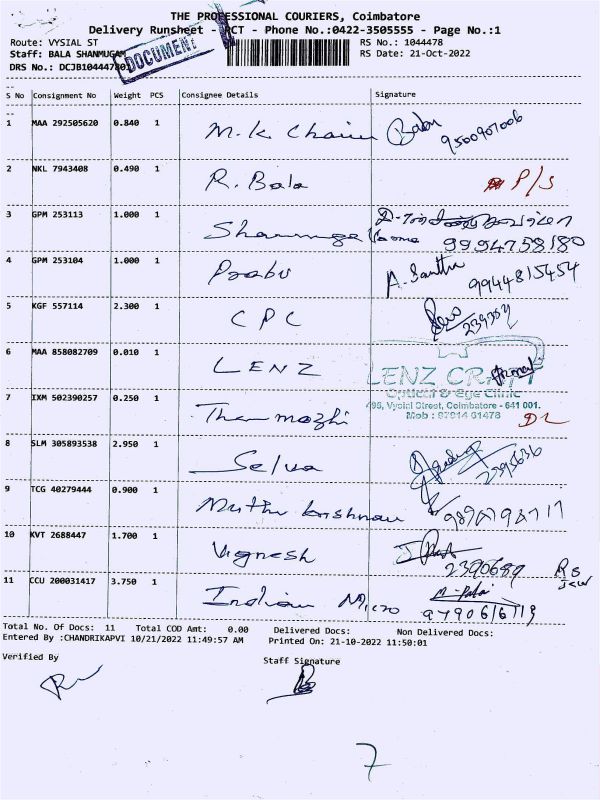 THE PROFESSIONAL COURIERS, Coimbatore
Delivery Runsheet - PCT - Phone No.:0422-3505555 - Page No.:1
Route: VYSIAL ST RS No.: 1044478
Staff: BALA SHANMUGAM RS Date: 21-Oct-2022
DOCUMENT
DRS No.: DCJB1044478
S No Consignment No Weight PCS Consignee Details Signature
1 MAA 292505620 0.840 1 M.K. Babu
9500907006
2 NKL 7943408 0.490 1 R. Bala P/S
3 GPM 253113 1.000 1
9994758180
4 GPM 253104 1.000 1 Prabu A. Santhu 9944815454
5 KGF 557114 2.300 1 CPC
6 MAA 858082709 0.010 1 LENZ
LENZ CRAFT
Optical & Eye Clinic
7 IXM 502390257 0.250 1 Then mozhi
Vysial Street, Coimbatore - 641 001.
DL
8 SLM 305893538 2.950 1 Selva
2395636
9 TCG 40279444 0.900 1 Muthu krishnan
10 KVT 2688447 1.700 1 Vignesh
2390689
11 CCU 200031417 3.750 1 Indian Micro
Total No. Of Docs: 11 Total COD Amt: 0.00 Delivered Docs: Non Delivered Docs:
Entered By :CHANDRIKAPVI 10/21/2022 11:49:57 AM Printed On: 21-10-2022 11:50:01
Verified By Staff Signature
7